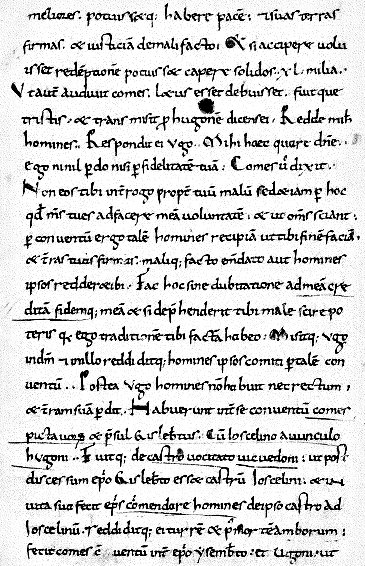 meliores. potuisset q; habere pacē. & suas terras
firmas. & iusticiā de malifacto. Et si accipere uolu
isset redēptionē potuisset capere solidos .xl. milia.
Ut autē audiuit comes. laetus esse debuisset. fuitque
tristis. & transmisit p hugonē dicens ei. Redde mihi
homines. Respondit ei Vgo. Mihi haec quare dn̄e.
Ego nihil perdo nisi p fidelitatē tuā. Comes u̅ dixit.
Non eos tibi int̄rogo propt̄ tuū malū sed etiam p hoc
qd̄ m̄s tu es ad facere meā uoluntatē. & ut om̄s sciant.
p conuentū ergo talē homines recipiā ut tibi finē faciā.
de t̄ras tuas firmas. maliq; facto em̄dato aut homines
ipsos reddere tibi. Fac hoc sine dubitatione ad meā cre
ditā fidemq; meā & si dep̄henderit tibi male scire po
teris q; ego traditionē tibi factā habeo. Misitq; Vgo
in dn̄i & in illo reddiditq; homines ipsos comiti p talē con
uentū. Postea Vgo homines nō habuit nec rectum.
& t̄ram suā p̄dit. Habuerunt int̄ se conuentū comes
pictauos & p̄sul Gislebtus. Cū Ioscelino auunculo
hugoni. Fuitq; de castrō uocitato uiuedoni. ut post
discessum ep̄o Gislebto esset castrū Ioscelini. &
uita sua fecit ep̄s cōmendare homines de ipso castro ad
Ioscelinū. reddiditq; ei turrē & p̄ mortē amborum.
fecit comes conuentū int̄ ep̄o ysembto. et Vgoni. ut